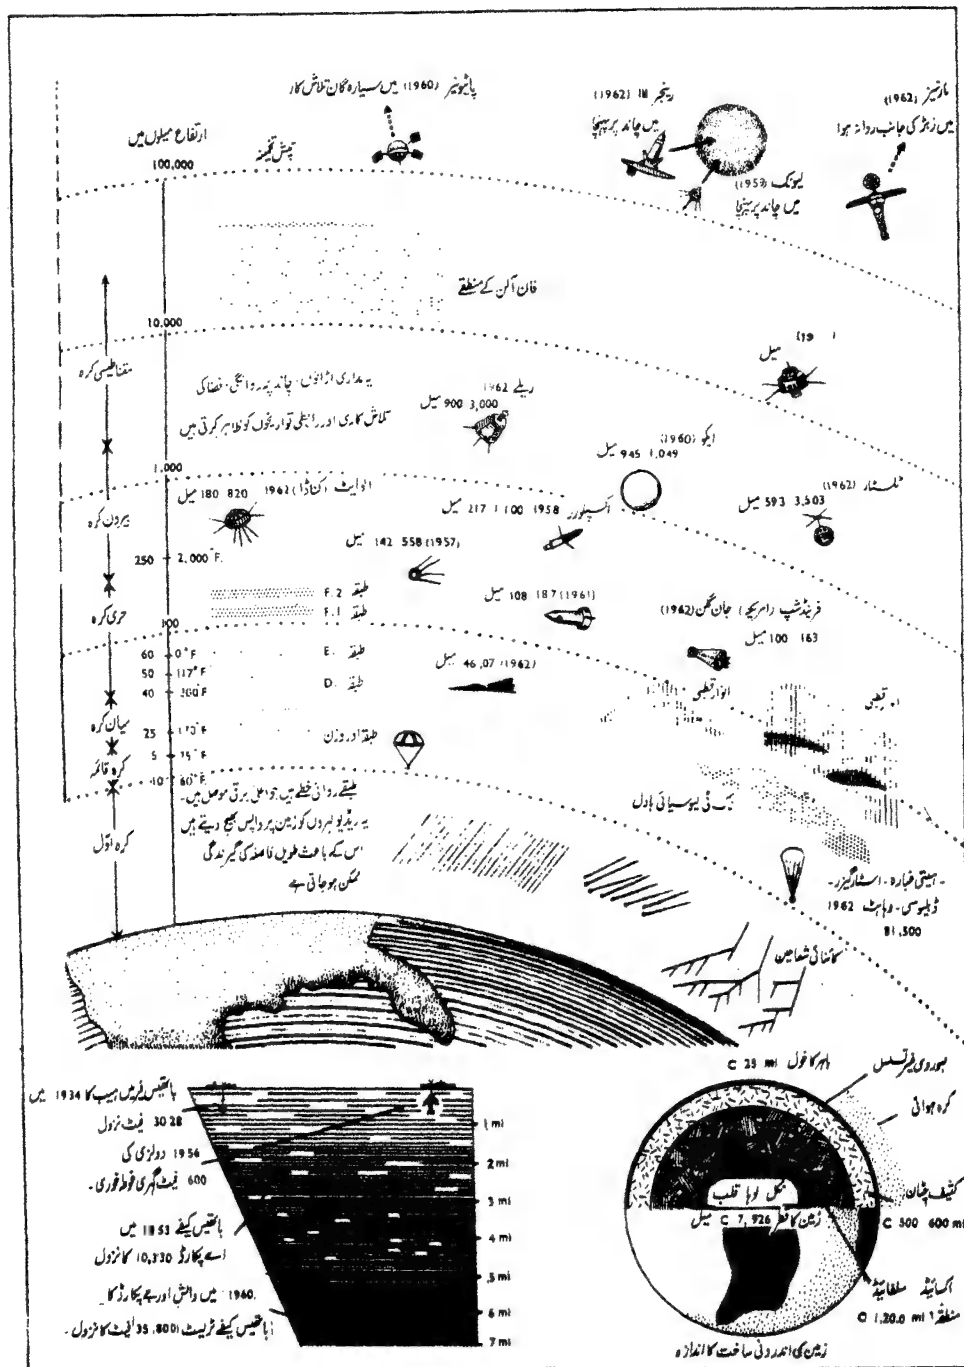 پائیونیر (1960) میں سیارہ گان تلاش کار
رینجر III (1962)
میں چاند پر پہنچا
مارنیز (1962)
میں زہرٰ کی جانب روانہ ہوا
ارتفاع میلوں میں
100,000
لیونک (1959)
میں چاند پر پہنچا
فان آلن کے منطقے
10,000
مقناطیسی کرہ
میل
یہ مداری اڑانوں، چاند پر روانگی، فضا کی
تلاش کاری اور رابطی تواریخوں کو ظاہر کرتی ہیں
ریلے 1962
900 3,000 میل
ایکو (1960)
945 1,049 میل
1,000
الوایٹ (کناڈا) 1962 820 180 میل
اکسپلورر 1958 1,100 217 میل
ٹلسٹار (1962)
593 3,503 میل
بیرون کرہ
142 558 (1957) میل
250
2,000°F.
حری کرہ
طبقہ F.2
طبقہ F.1
108 187 (1961) میل
فرینڈشپ (امریکہ) جان گلن (1962)
100 163 میل
100
60 0°F
50 117°F
40 300°F
طبقہ E.
طبقہ D.
46,07 (1962) میل
انوار قطبی
میان کرہ
25
طبقہ اوزون
5
کرہ قائمہ
10
طبقے روانی خطے ہیں جو اعلیٰ برقی موصل ہیں۔
یہ ریڈیو لہروں کو زمین پر واپس بھیج دیتے ہیں
اس کے باعث طویل فاصلہ کی گیرندگی
ممکن ہو جاتی ہے
کرہ اوّل
بادل
ہیتی غبارہ۔ اسٹارگیزر۔
ڈبلیوسی۔ وہائٹ 1962
81,500
کائناتی شعاعیں
باتھیس فیر میں بیب کا 1934 میں
3028 فیٹ نزول
1956 دولزی کی
600 فیٹ گہری غوطہ خوری۔
باتھیس کیفے 1853 میں
اے پکارڈ 10,330 کا نزول
1960 میں والش اور جے پکارڈ کا
باتھیس کیفے ٹریسٹ (35,800) فیٹ کا نزول۔
1 mi
2 mi
3 mi
4 mi
5 mi
6 mi
7 mi
C 25 mi باہر کا خول
کرہ ہوائی
کثیف چٹان
C 500 600 mi
قلب
زمین کا قطر C 7,926 میل
اکسائیڈ سلفائیڈ
منطقہ C 1,20.0 mi
زمین کی اندرونی ساخت کا اندازہ